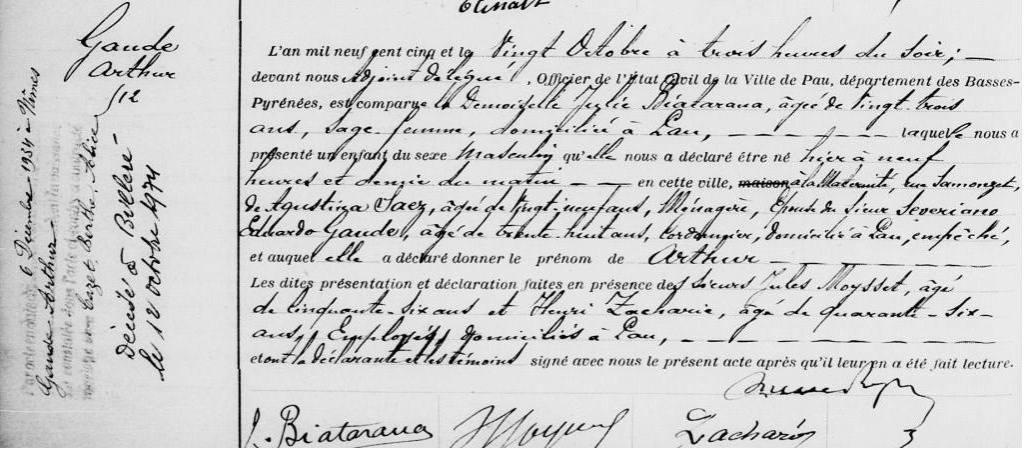 Gaude
Arthur
512
Par acte marié le 6 Décembre 1934 à Nîmes
Gaude Arthur
mariage avec Cuzet Berthe Alice
Décédé à Billère
le 12 octobre 1974
L'an mil neuf cent cinq et le Vingt Octobre à trois heures du soir; —
devant nous Adjoint délégué, Officier de l'État Civil de la Ville de Pau, département des Basses-
Pyrénées, est comparue la Demoiselle Julie Biatarana, âgée de vingt trois
ans, sage femme, domiciliée à Pau, — — — — laquelle nous a
présenté un enfant du sexe Masculin qu'elle nous a déclaré être né hier à neuf
heures et demie du matin — — en cette ville, maison à la Maternité, rue Samonzet,
de Agustina Saez, âgée de vingt-neuf ans, Ménagère, Epouse du sieur Severiano
Eduardo Gaude, âgé de trente-huit ans, cordonnier, domicilié à Pau, empêché,
et auquel elle a déclaré donner le prénom de Arthur — — — —
Les dites présentation et déclaration faites en présence des sieurs Jules Moysset, âgé
de cinquante-six ans et Henri Zacharie, âgé de quarante-six-
ans, Employés, domiciliés à Pau, — — — —
et ont la déclarante et les témoins signé avec nous le présent acte après qu'il leur en a été fait lecture.
J. Biatarana